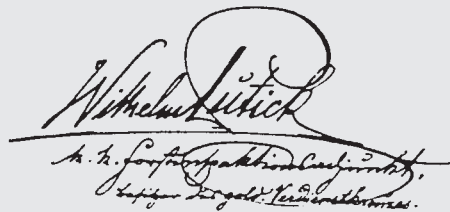 Wilhelm Leutick
k. k. Forstinspektionsadjunkt,
besitzer des gold. Verdienstkreuzes.